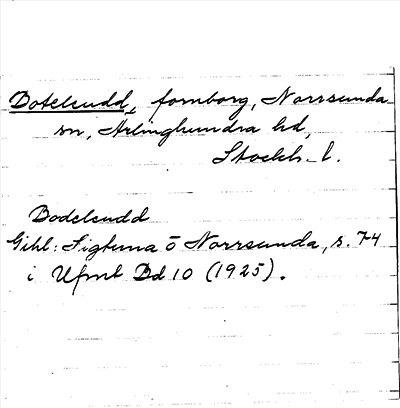 Botelsudd, fornborg, Norrsunda
sn, Ärlinghundra hd,
Stockh. l.
Bodelsudd
Gihl: Sigtuna o Norrsunda, s. 74
i Ufmt Bd 10 (1925).